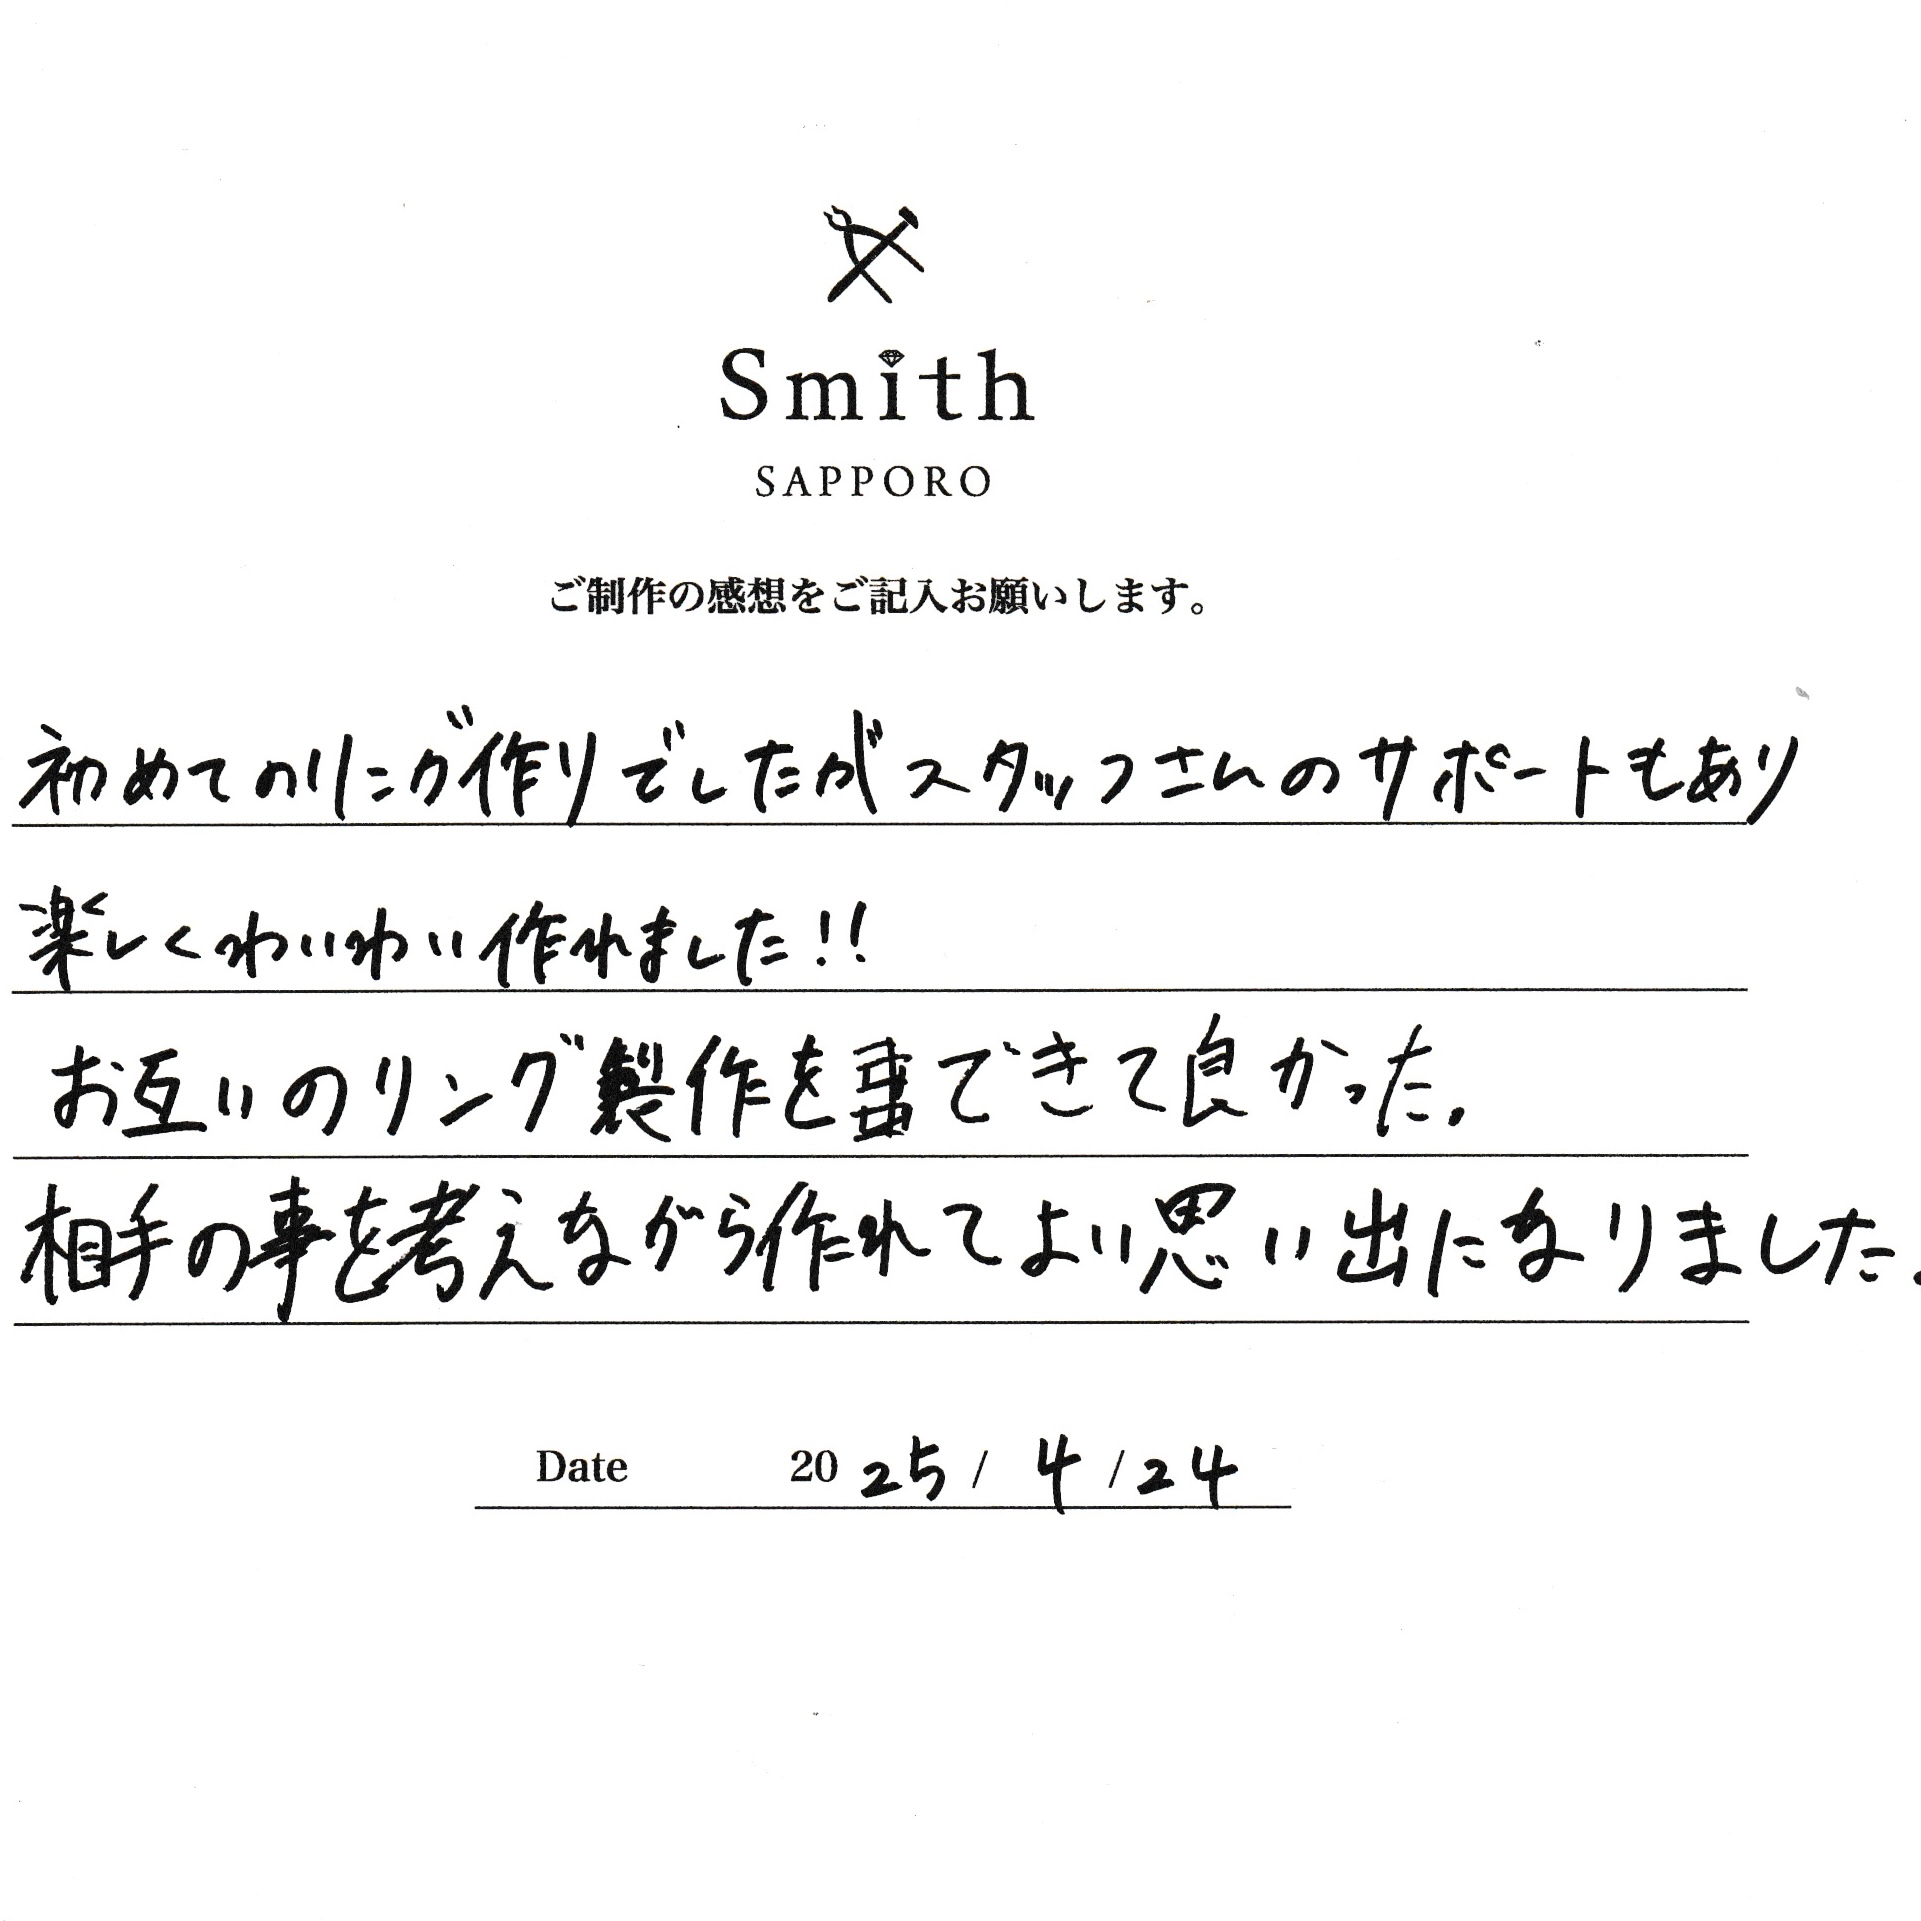 Smith
SAPPORO
ご制作の感想をご記入お願いします。
初めてのリング作りでしたがスタッフさんのサポートもあり
楽しくわいわい作れました!!
お互いのリング製作をできて良かった.
相手の事を考えながら作れてよい思い出になりました.
Date 2025/4/24